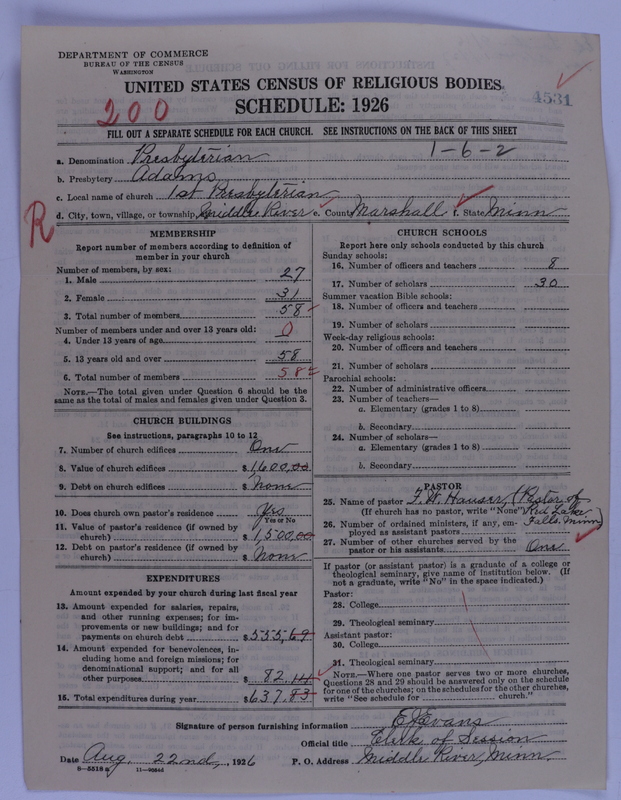 DEPARTMENT OF COMMERCE
BUREAU OF THE CENSUS
WASHINGTON
UNITED STATES CENSUS OF RELIGIOUS BODIES
4531
200
SCHEDULE: 1926
FILL OUT A SEPARATE SCHEDULE FOR EACH CHURCH. SEE INSTRUCTIONS ON THE BACK OF THIS SHEET
1-6-2
a. Denomination Presbyterian
b. Presbytery Adams
c. Local name of church 1st Presbyterian
R
d. City, town, village, or township Middle River e. County Marshall f. State Minn
MEMBERSHIP
Report number of members according to definition of
member in your church
Number of members, by sex:
1. Male 27
2. Female 31
3. Total number of members 58
Number of members under and over 13 years old:
4. Under 13 years of age 0
5. 13 years old and over 58
6. Total number of members 58
NOTE.—The total given under Question 6 should be the
same as the total of males and females given under Question 3.
CHURCH BUILDINGS
See instructions, paragraphs 10 to 12
7. Number of church edifices One
8. Value of church edifices $1,600.00
9. Debt on church edifices $None
10. Does church own pastor's residence Yes
Yes or No
11. Value of pastor's residence (if owned by
church) $1,500.00
12. Debt on pastor's residence (if owned by
church) $None
EXPENDITURES
Amount expended by your church during last fiscal year
13. Amount expended for salaries, repairs,
and other running expenses; for im-
provements or new buildings; and for
payments on church debt $555.69
14. Amount expended for benevolences, in-
cluding home and foreign missions; for
denominational support; and for all
other purposes $82.14
15. Total expenditures during year $637.83
CHURCH SCHOOLS
Report here only schools conducted by this church
Sunday schools:
16. Number of officers and teachers 8
17. Number of scholars 30
Summer vacation Bible schools:
18. Number of officers and teachers
19. Number of scholars
Week-day religious schools:
20. Number of officers and teachers
21. Number of scholars
Parochial schools:
22. Number of administrative officers
23. Number of teachers—
a. Elementary (grades 1 to 8)
b. Secondary
24. Number of scholars—
a. Elementary (grades 1 to 8)
b. Secondary
PASTOR
25. Name of pastor F. W. Hauser, (Pastor of
(If church has no pastor, write "None") Red Lake
26. Number of ordained ministers, if any, em- Falls, Minn)
ployed as assistant pastors
27. Number of other churches served by the
pastor or his assistants One
If pastor (or assistant pastor) is a graduate of a college or
theological seminary, give name of institution below. (If
not a graduate, write "No" in the space indicated.)
Pastor:
28. College
29. Theological seminary
Assistant pastor:
30. College
31. Theological seminary
NOTE.—Where one pastor serves two or more churches,
Questions 28 and 29 should be answered only on the schedule
for one of the churches; on the schedules for the other churches,
write "See schedule for church."
Signature of person furnishing information E J Evans
Official title Clerk of Session
Date Aug. 22nd, 1926 P. O. Address Middle River, Minn.
8-5518a 11-9084d